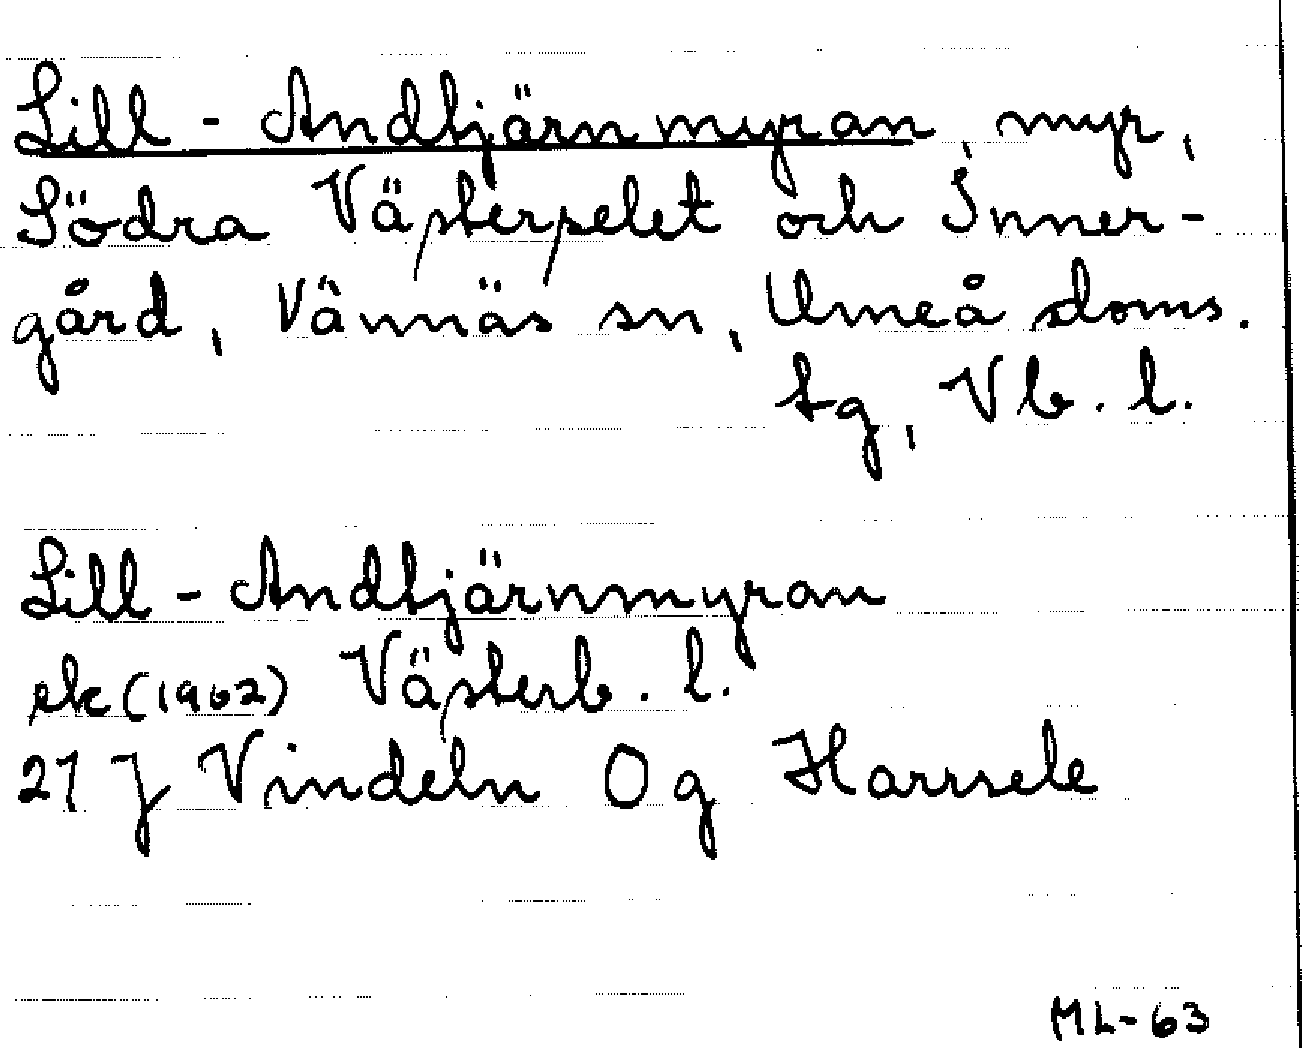 Lill-Andtjärnmyran, myr,
Södra Västerselet och Inner-
gård, Vännäs sn, Umeå doms.
tg, Vb. l.
Lill-Andtjärnmyran
ek (1962) Västerb. l.
21 J Vindeln 0 g Harrsele
ML-63